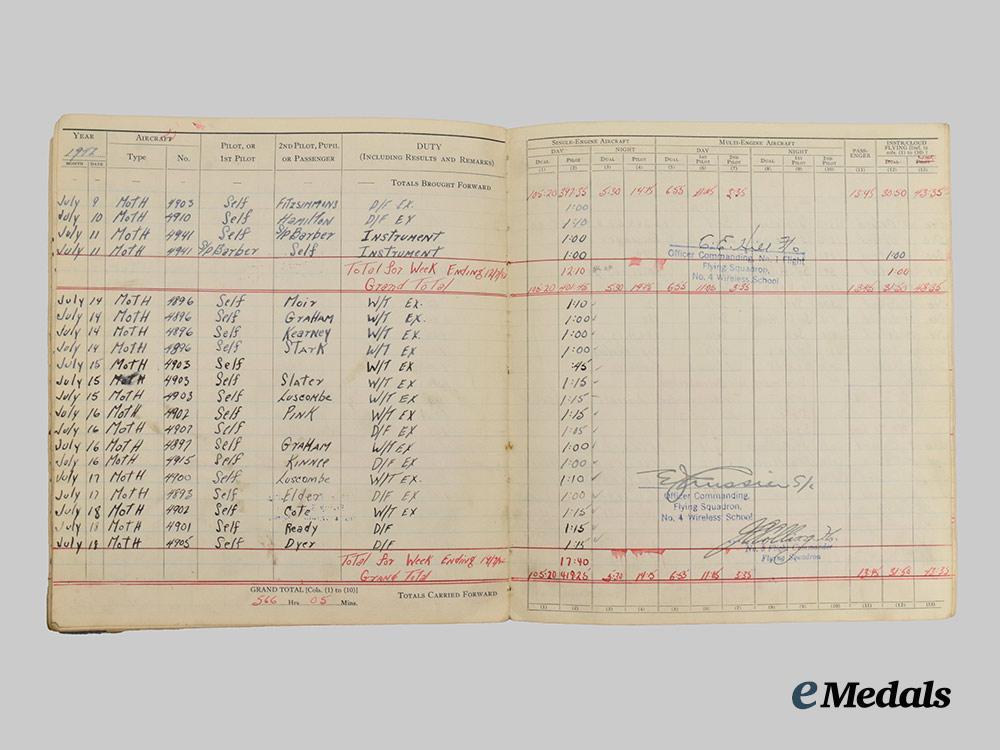 YEAR AIRCRAFT PILOT, OR 1ST PILOT 2ND PILOT, PUPIL OR PASSENGER DUTY (INCLUDING RESULTS AND REMARKS)
1942
MONTH DATE Type No.
TOTALS BROUGHT FORWARD
July 9 Moth 4903 Self Fitzsimmins D/F Ex.
July 10 Moth 4910 Self Hamilton D/F Ex
July 11 Moth 4941 Self S/P Barber Instrument
July 11 Moth 4941 S/P Barber Self Instrument
Total for Week Ending
Grand Total
July 14 Moth 4896 Self Moir W/T Ex.
July 14 Moth 4896 Self Graham W/T Ex.
July 14 Moth 4896 Self Kearney W/T Ex
July 14 Moth 4896 Self Stark W/T Ex
July 15 Moth 4903 Self W/T Ex
July 15 Moth 4903 Self Slater W/T Ex
July 15 Moth 4903 Self Luscombe W/T Ex
July 16 Moth 4902 Self Pink W/T Ex
July 16 Moth 4907 Self D/F Ex
July 16 Moth 4897 Self Graham W/T Ex
July 16 Moth 4915 Self Kinnee D/F Ex
July 17 Moth 4900 Self Luscombe W/T Ex.
July 17 Moth 4893 Self Elder D/F Ex
July 18 Moth 4902 Self Cote W/T Ex
July 18 Moth 4901 Self Ready D/F
July 18 Moth 4905 Self Dyer D/F
Total for Week Ending
Grand Total
GRAND TOTAL [Cols. (1) to (10)]
566 Hrs. 05 Mins.
TOTALS CARRIED FORWARD
SINGLE-ENGINE AIRCRAFT MULTI-ENGINE AIRCRAFT PASSENGER INSTR/CLOUD FLYING [Incl. in cols. (1) to (10)]
DAY NIGHT DAY NIGHT
DUAL PILOT DUAL PILOT DUAL 1ST PILOT 2ND PILOT DUAL 1ST PILOT 2ND PILOT DUAL
(1) (2) (3) (4) (5) (6) (7) (8) (9) (10) (11) (12) (13)
105:20 5:30 14:15 6:55 11:05 3:35 13:45 30:50
1:00
1:40
1:00
1:00 1:00
12:10 1:00
105:20 5:30 6:55 11:05 3:35 13:45 31:50
C. E. Hill F/O
Officer Commanding, No. 1 Flight
Flying Squadron,
No. 4 Wireless School
1:40
1:00
1:00
1:00
:45
1:15
1:15
1:15
1:00
1:00
1:10
1:00
1:15
1:15
1:15
Officer Commanding,
Flying Squadron,
No. 4 Wireless School
Flying Squadron
17:40
105:20 419:25 5:30 14:15 6:55 11:05 3:35 13:45 31:50
(1) (2) (3) (4) (5) (6) (7) (8) (9) (10) (11) (12) (13)
eMedals